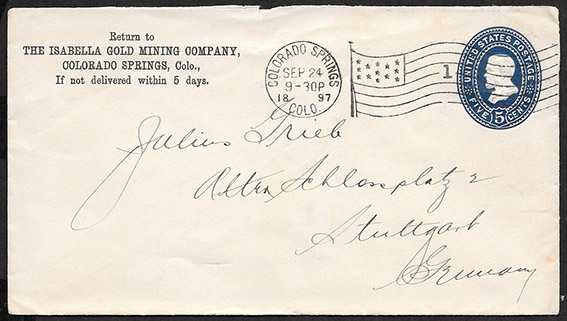 Return to
THE ISABELLA GOLD MINING COMPANY,
COLORADO SPRINGS, Colo.,
If not delivered within 5 days.
COLORADO SPRINGS
SEP 24
9-30P
18 97
COLO.
1
UNITED STATES POSTAGE
FIVE 5 CENTS
Julius Grieb
Schlossplatz 2
Stuttgart
Germany